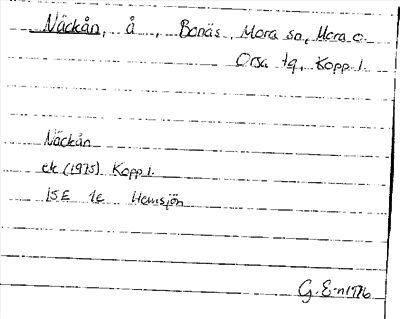 Näckån, å, Bonäs, Mora sn, Mora o.
Orsa tg, Kopp l.
Näckån
ek (1975) Kopp l.
15E 1e Hemsjön
G. E-n 1976